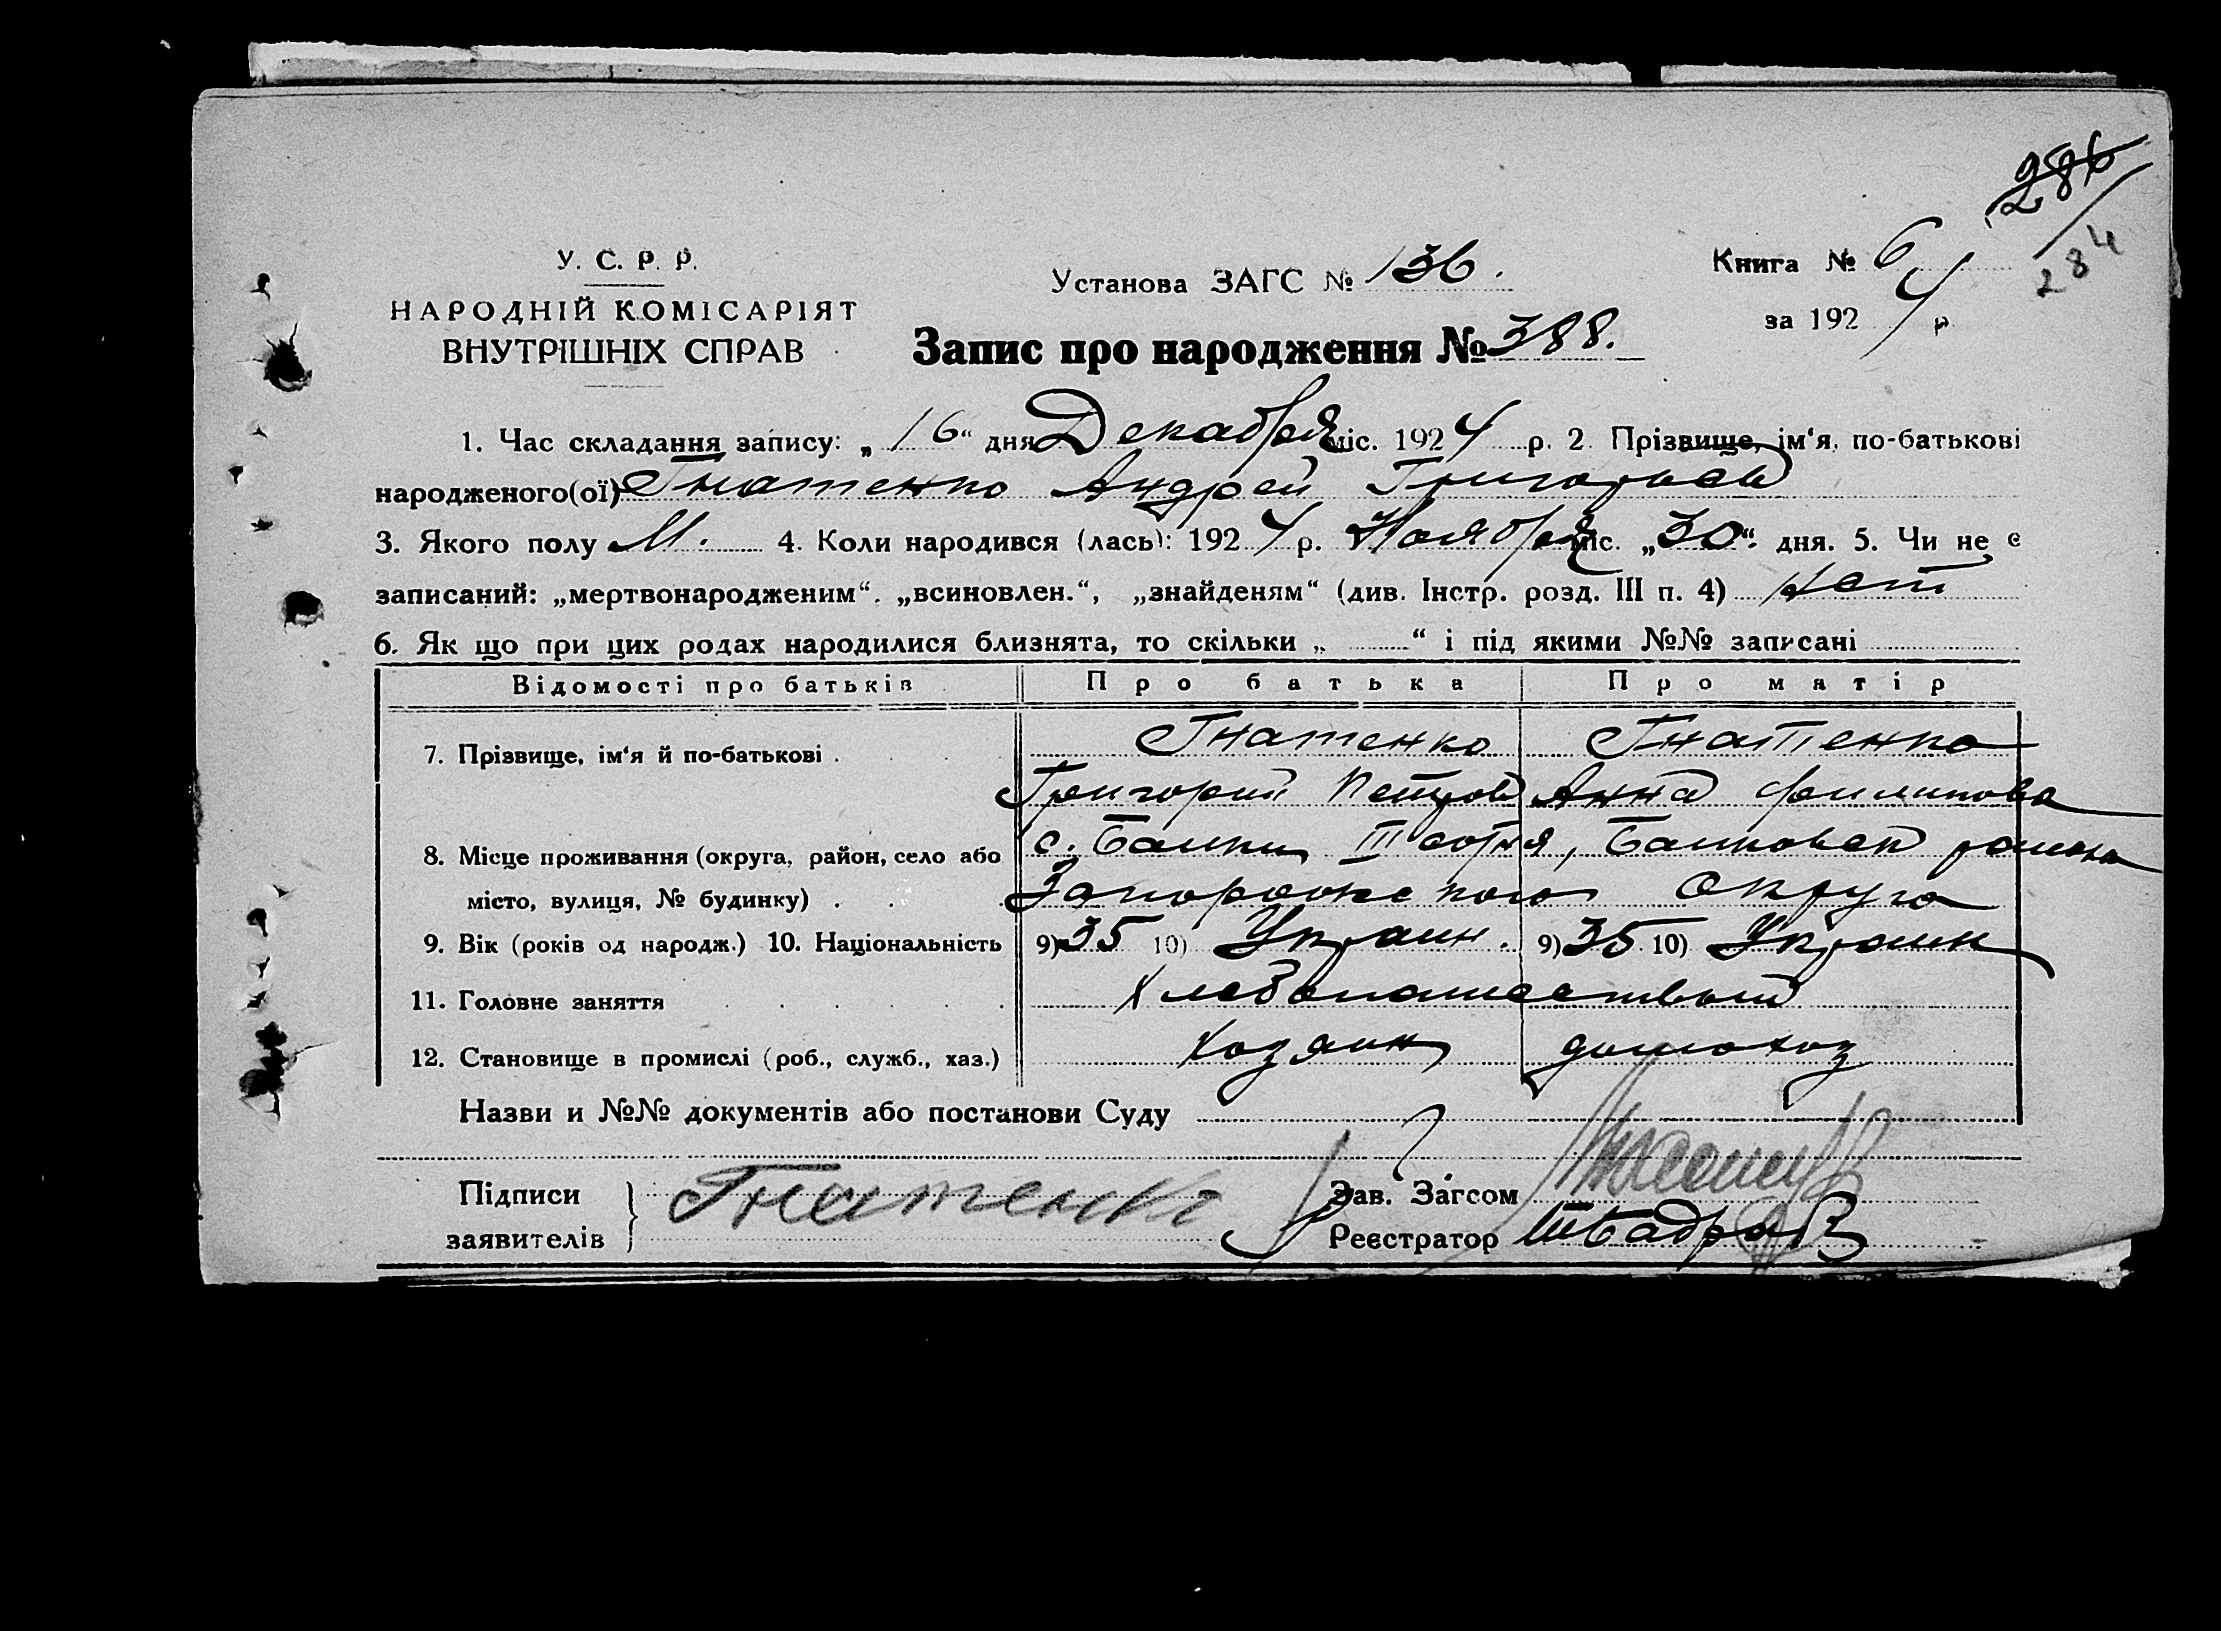 286
284
У. С. Р. Р.
НАРОДНІЙ КОМІСАРІЯТ
ВНУТРІШНІХ СПРАВ
Установа ЗАГС № 136.
Книга № 6
за 1924 р.
Запис про народження № 388.
1. Час складання запису: „16“ дня Декабря міс. 1924 р. 2. Прізвище, ім‘я, по-батькові
народженого(ої) Гнатенко Андрей Григорьев
3. Якого полу М. 4. Коли народився (лась): 1924 р. Ноября міс. „30“ дня. 5. Чи не є
записаний: „мертвонародженим“, „всиновлен.“, „знайденям“ (див. Інстр. розд. III п. 4) Нет
6. Як що при цих родах народилися близнята, то скільки „ “ і під якими №№ записані
Відомості про батьків Про батька Про матір
7. Прізвище, ім‘я й по-батькові Гнатенко Гнатенко
Григорий Петров Анна Филипова
8. Місце проживання (округа, район, село або с. Балки III сотня, Балковск района
місто, вулиця, № будинку) Запорожского округа
9. Вік (років од народж.) 10. Національність 9) 35 10) Украин. 9) 35 10) Украин
11. Головне заняття Хлебопашеством
12. Становище в промислі (роб., служб., хаз.) Хозяин домохоз
Назви и №№ документів або постанови Суду
Підписи Гнатенко Зав. Загсом
заявителів Реєстратор